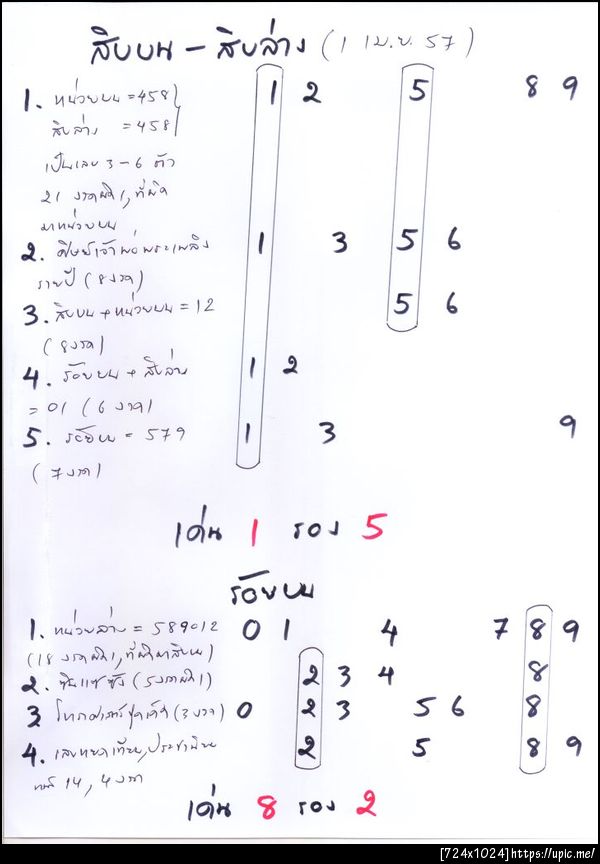 สิบบน - สิบล่าง (1 เม.ย. 57)
1. หน่วยบน = 458 1 2 5 8 9
สิบล่าง = 458
เป็นเลข 3-6 ตัว
21 งวดผิด 1, ที่ผิด
มาหน่วยบน
2. ศิษย์เจ้าพ่อพระเพลิง 1 3 5 6
รายปี (8 งวด)
3. สิบบน + หน่วยบน = 12 5 6
(8 งวด)
4. ร้อยบน + สิบล่าง 1 2
= 01 (6 งวด)
5. ร้อยบน = 579 1 3 9
(7 งวด)
เด่น 1 รอง 5
ร้อยบน
1. หน่วยล่าง = 589012 0 1 4 7 8 9
(18 งวดผิด 1, ที่ผิดมาสิบบน)
2. (5 งวดผิด 1) 2 3 4 8
3. (3 งวด) 0 2 3 5 6 8
4. 2 5 8 9
14, 4 งวด
เด่น 8 รอง 2
[724x1024] https://upic.me/